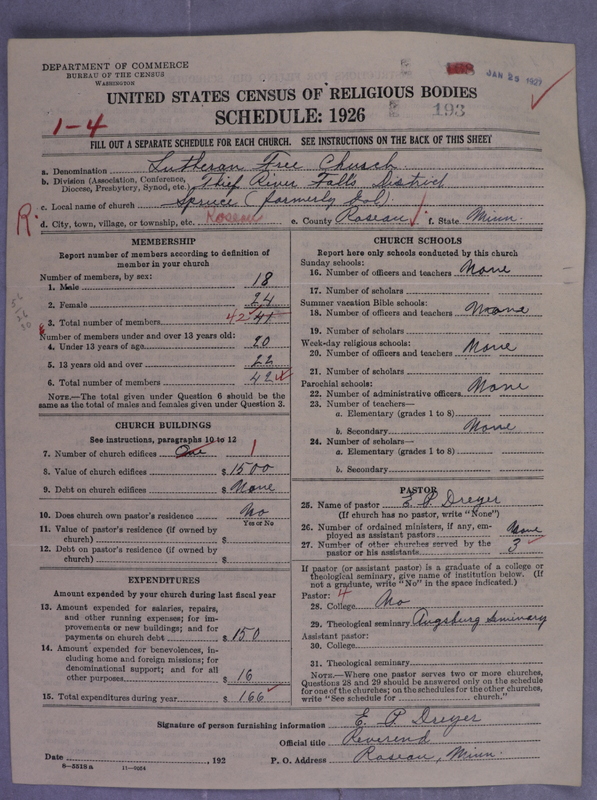 DEPARTMENT OF COMMERCE
BUREAU OF THE CENSUS
WASHINGTON
168 JAN 25 1927
UNITED STATES CENSUS OF RELIGIOUS BODIES
193
SCHEDULE: 1926
1-4
FILL OUT A SEPARATE SCHEDULE FOR EACH CHURCH. SEE INSTRUCTIONS ON THE BACK OF THIS SHEET
a. Denomination Lutheran Free Church
b. Division (Association, Conference, Diocese, Presbytery, Synod, etc.) Thief River Falls District
c. Local name of church Spruce (formerly Gol)
R. d. City, town, village, or township, etc. Roseau e. County Roseau f. State Minn.
MEMBERSHIP
Report number of members according to definition of
member in your church
Number of members, by sex:
1. Male 18
2. Female 24
3. Total number of members 42 41
Number of members under and over 13 years old:
4. Under 13 years of age 20
5. 13 years old and over 22
6. Total number of members 42
NOTE.—The total given under Question 6 should be the
same as the total of males and females given under Question 3.
CHURCH BUILDINGS
See instructions, paragraphs 10 to 12
7. Number of church edifices One 1
8. Value of church edifices $ 1500
9. Debt on church edifices $ None
10. Does church own pastor's residence No
Yes or No
11. Value of pastor's residence (if owned by
church) $
12. Debt on pastor's residence (if owned by
church) $
EXPENDITURES
Amount expended by your church during last fiscal year
13. Amount expended for salaries, repairs,
and other running expenses; for im-
provements or new buildings; and for
payments on church debt $ 150
14. Amount expended for benevolences, in-
cluding home and foreign missions; for
denominational support; and for all
other purposes $ 16
15. Total expenditures during year $ 166
CHURCH SCHOOLS
Report here only schools conducted by this church
Sunday schools:
16. Number of officers and teachers None
17. Number of scholars
Summer vacation Bible schools:
18. Number of officers and teachers None
19. Number of scholars
Week-day religious schools:
20. Number of officers and teachers None
21. Number of scholars
Parochial schools:
22. Number of administrative officers None
23. Number of teachers—
a. Elementary (grades 1 to 8)
b. Secondary None
24. Number of scholars—
a. Elementary (grades 1 to 8)
b. Secondary
PASTOR
25. Name of pastor E P Dreyer
(If church has no pastor, write "None")
26. Number of ordained ministers, if any, em-
ployed as assistant pastors None
27. Number of other churches served by the
pastor or his assistants 3
If pastor (or assistant pastor) is a graduate of a college or
theological seminary, give name of institution below. (If
not a graduate, write "No" in the space indicated.)
Pastor: 4
28. College No
29. Theological seminary Augsburg Seminary
Assistant pastor:
30. College
31. Theological seminary
NOTE.—Where one pastor serves two or more churches,
Questions 28 and 29 should be answered only on the schedule
for one of the churches; on the schedules for the other churches,
write "See schedule for church."
Signature of person furnishing information E. P. Dreyer
Official title Reverend
Date , 192 P. O. Address Roseau, Minn.
8-5518a 11-9054